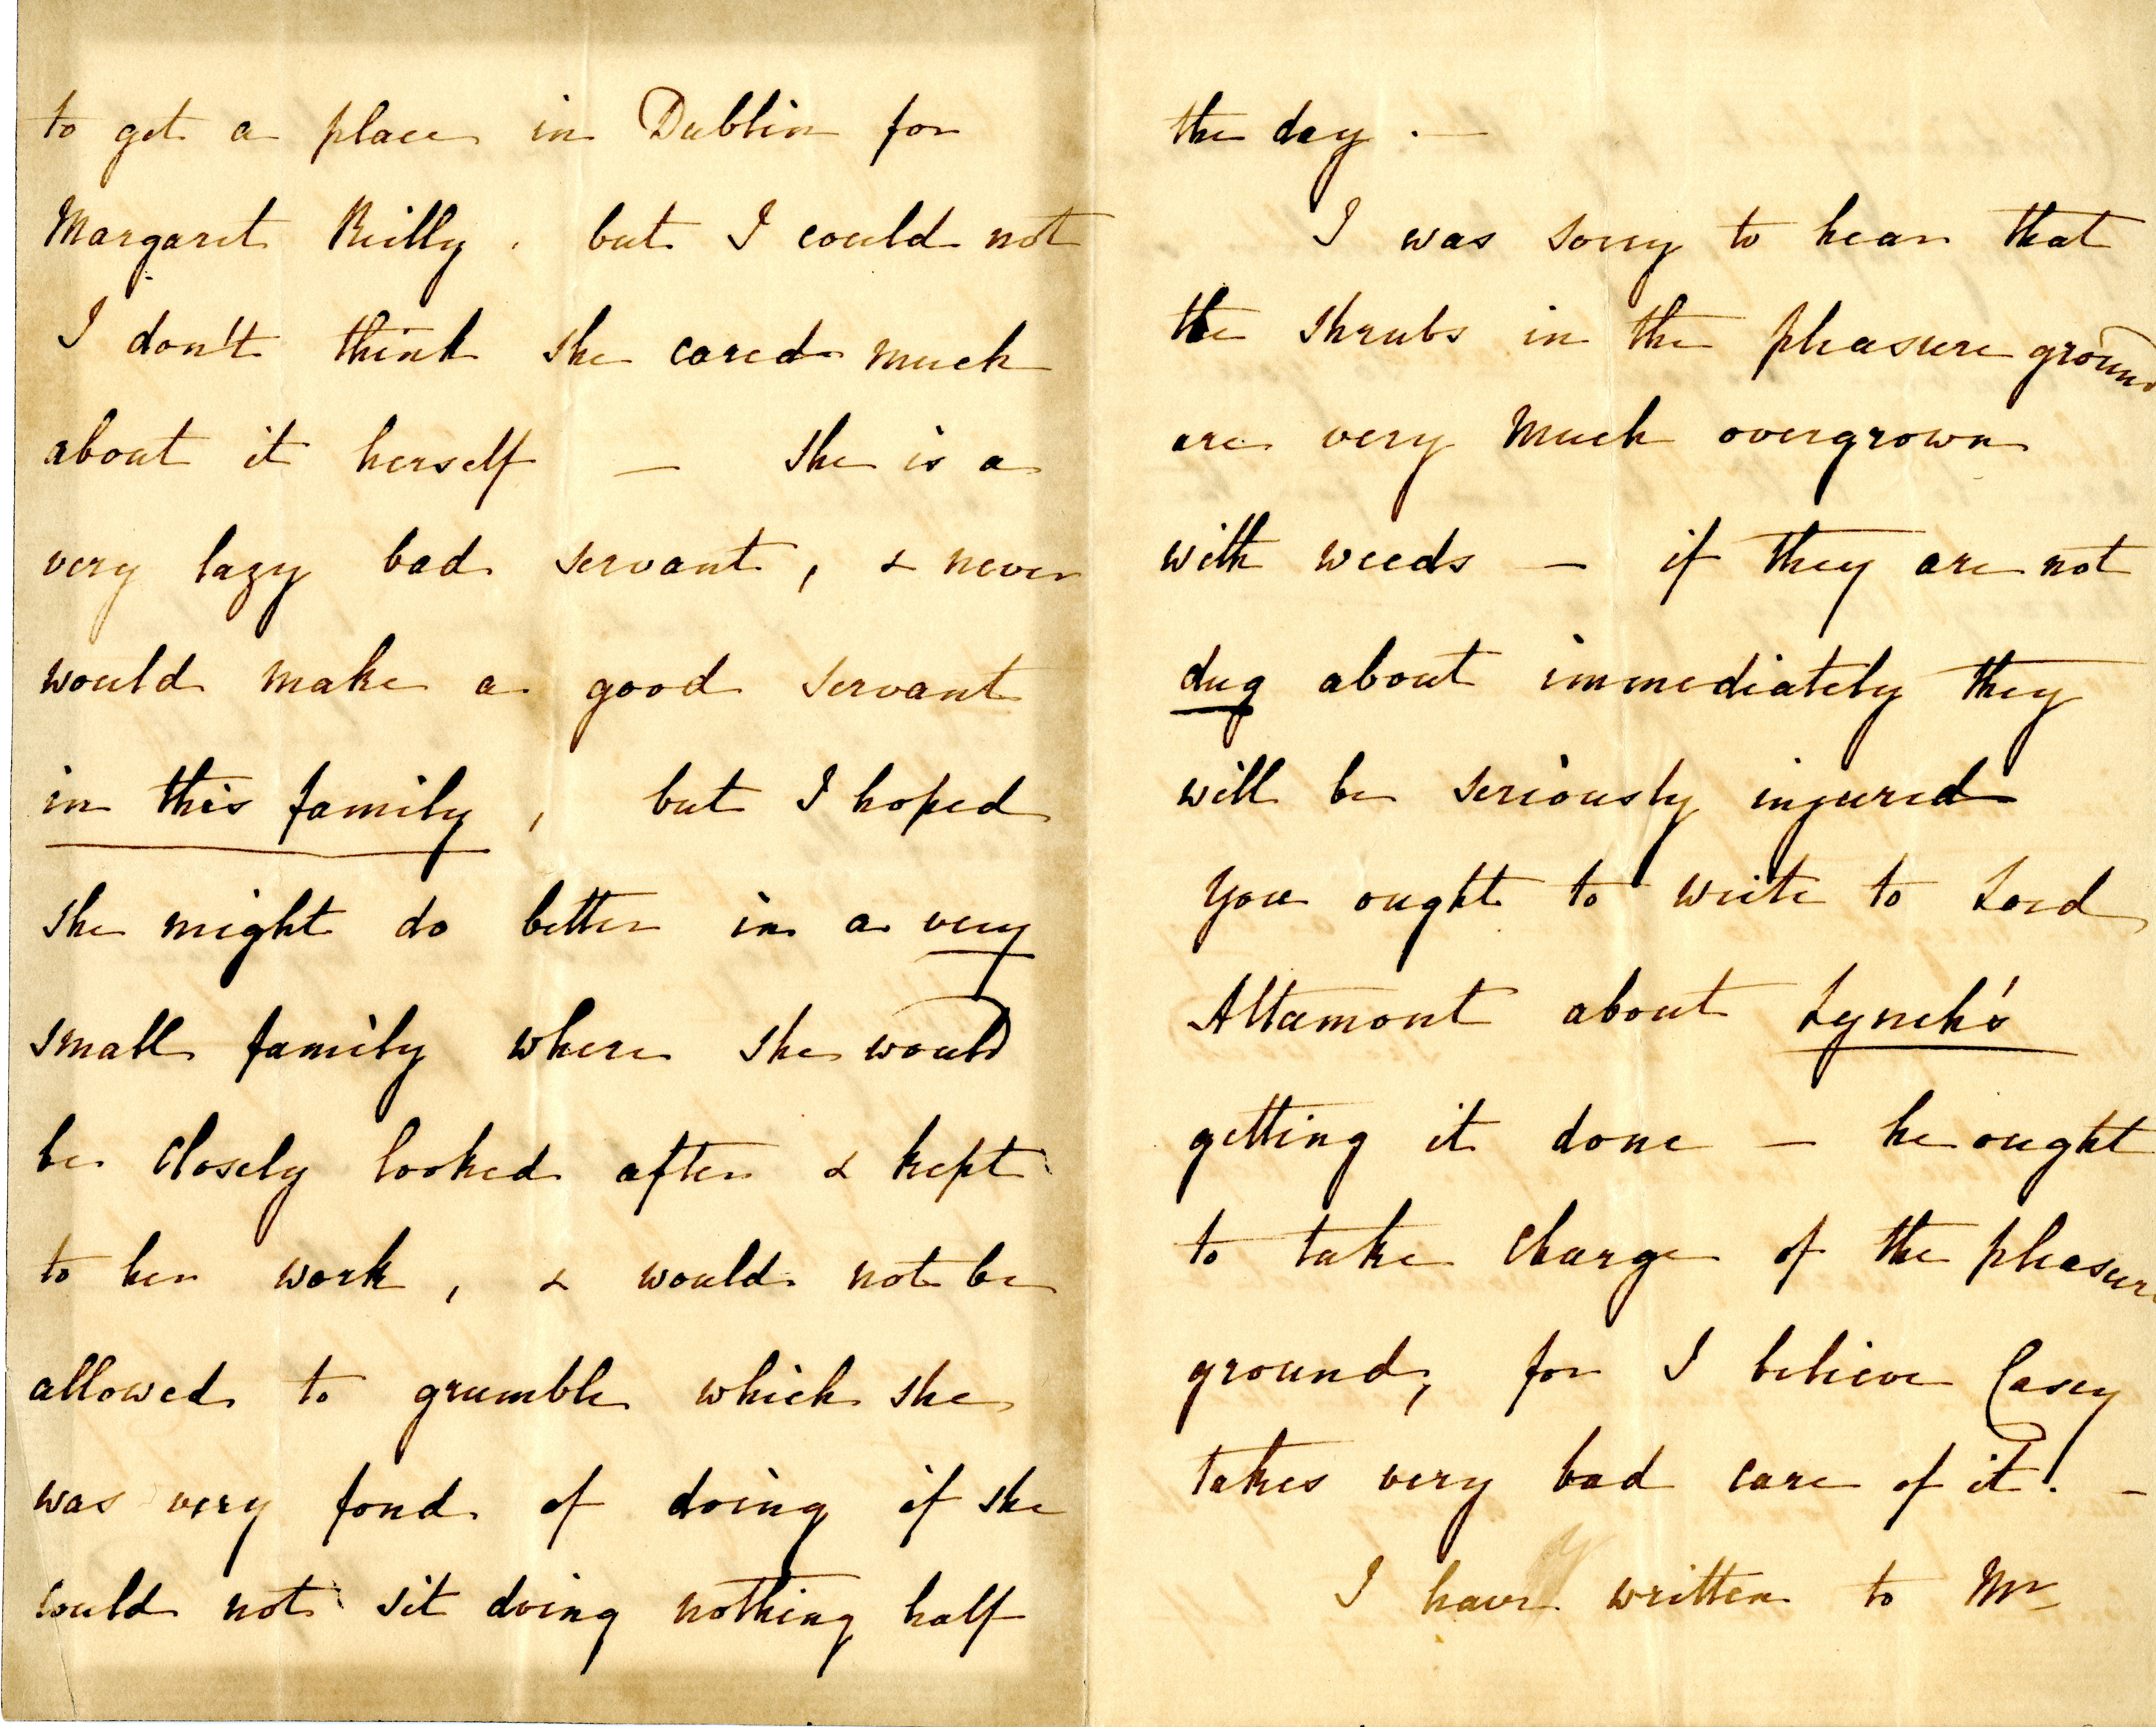 to get a place in Dublin for
Margaret Reilly. but I could not
I don't think she cared much
about it herself — she is a
very lazy bad servant, & never
would make a good servant
in this family, but I hoped
she might do better in a very
small family where she would
be closely looked after & kept
to her work, & would not be
allowed to grumble which she
was very fond of doing if she
could not sit doing nothing half
the day. —
I was sorry to hear that
the shrubs in the pleasure ground
are very much overgrown
with weeds — if they are not
dug about immediately they
will be seriously injured
you ought to write to Lord
Altamont about Lynch's
getting it done — he ought
to take charge of the pleasure
ground, for I believe Casey
takes very bad care of it. —
I have written to Mr